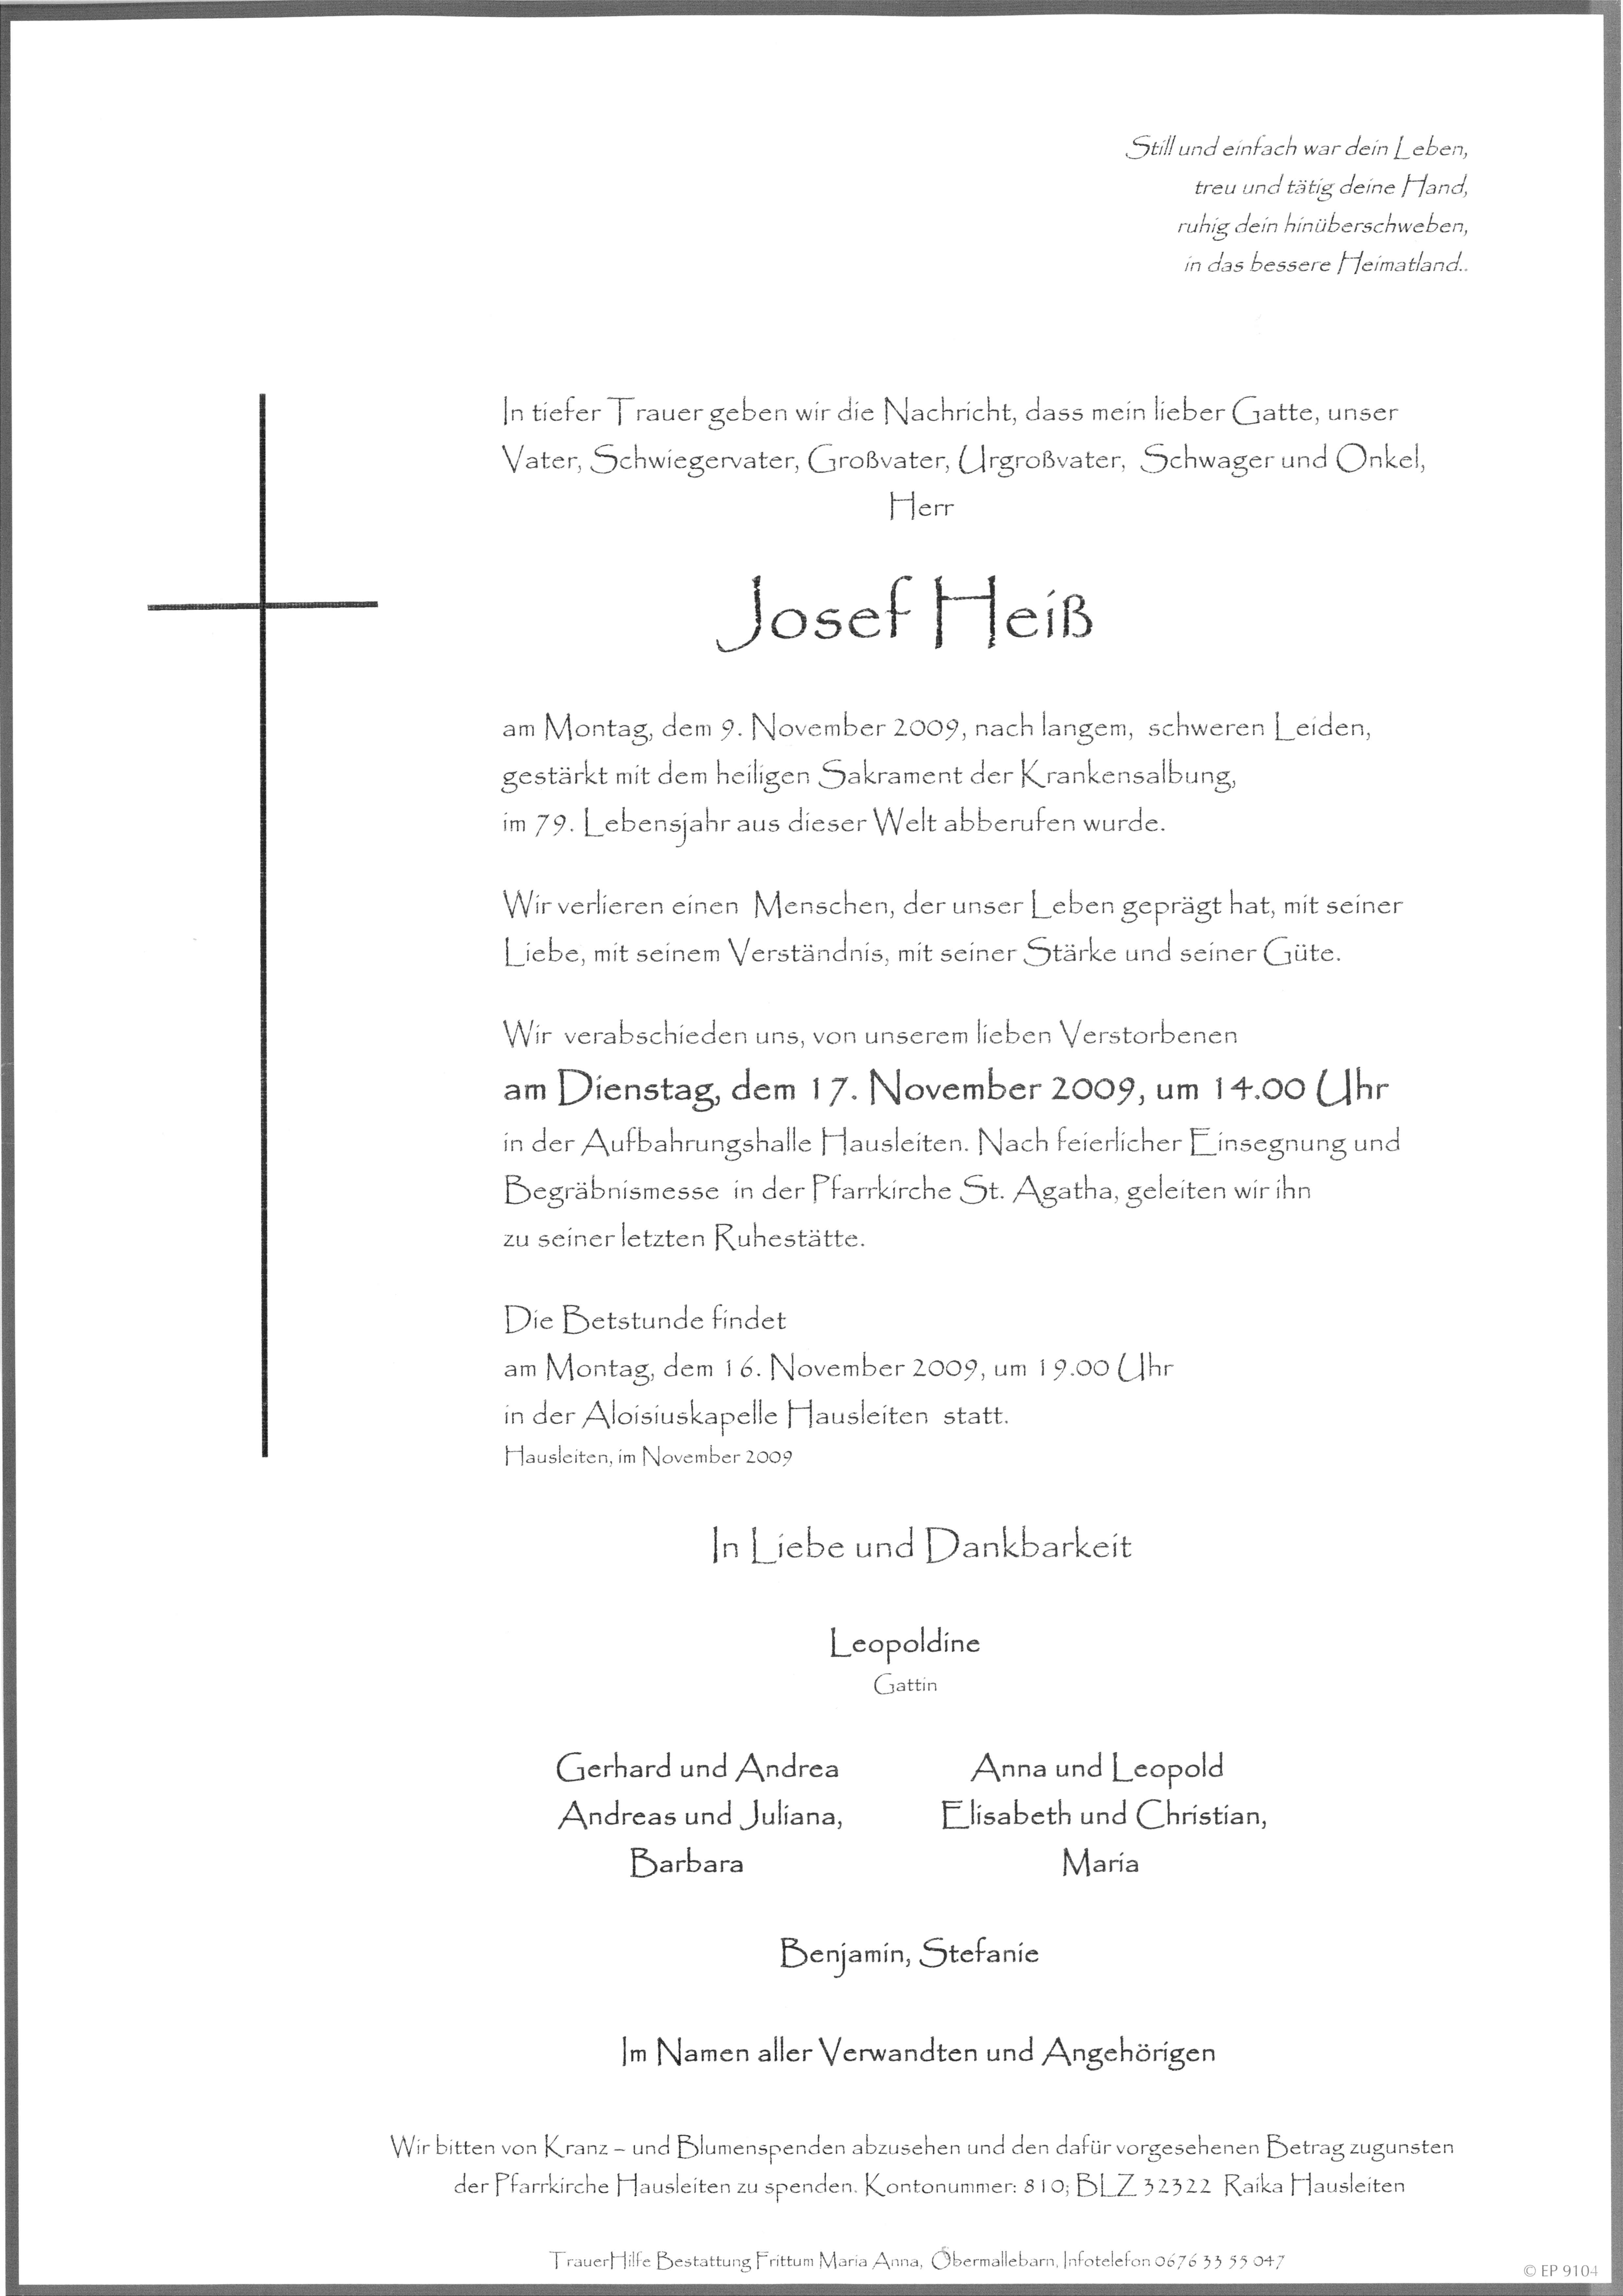 Still und einfach war dein Leben,
treu und tätig deine Hand,
ruhig dein hinüberschweben,
in das bessere Heimatland..
In tiefer Trauer geben wir die Nachricht, dass mein lieber Gatte, unser
Vater, Schwiegervater, Großvater, Urgroßvater, Schwager und Onkel,
Herr
Josef Heiß
am Montag, dem 9. November 2009, nach langem, schweren Leiden,
gestärkt mit dem heiligen Sakrament der Krankensalbung,
im 79. Lebensjahr aus dieser Welt abberufen wurde.
Wir verlieren einen Menschen, der unser Leben geprägt hat, mit seiner
Liebe, mit seinem Verständnis, mit seiner Stärke und seiner Güte.
Wir verabschieden uns, von unserem lieben Verstorbenen
am Dienstag, dem 17. November 2009, um 14.00 Uhr
in der Aufbahrungshalle Hausleiten. Nach feierlicher Einsegnung und
Begräbnismesse in der Pfarrkirche St. Agatha, geleiten wir ihn
zu seiner letzten Ruhestätte.
Die Betstunde findet
am Montag, dem 16. November 2009, um 19.00 Uhr
in der Aloisiuskapelle Hausleiten statt.
Hausleiten, im November 2009
In Liebe und Dankbarkeit
Leopoldine
Gattin
Gerhard und Andrea
Andreas und Juliana,
Barbara
Anna und Leopold
Elisabeth und Christian,
Maria
Benjamin, Stefanie
Im Namen aller Verwandten und Angehörigen
Wir bitten von Kranz – und Blumenspenden abzusehen und den dafür vorgesehenen Betrag zugunsten
der Pfarrkirche Hausleiten zu spenden. Kontonummer: 810; BLZ 32322 Raika Hausleiten
TrauerHilfe Bestattung Frittum Maria Anna, Obermallebarn, Infotelefon 0676 33 55 047
© EP 9104